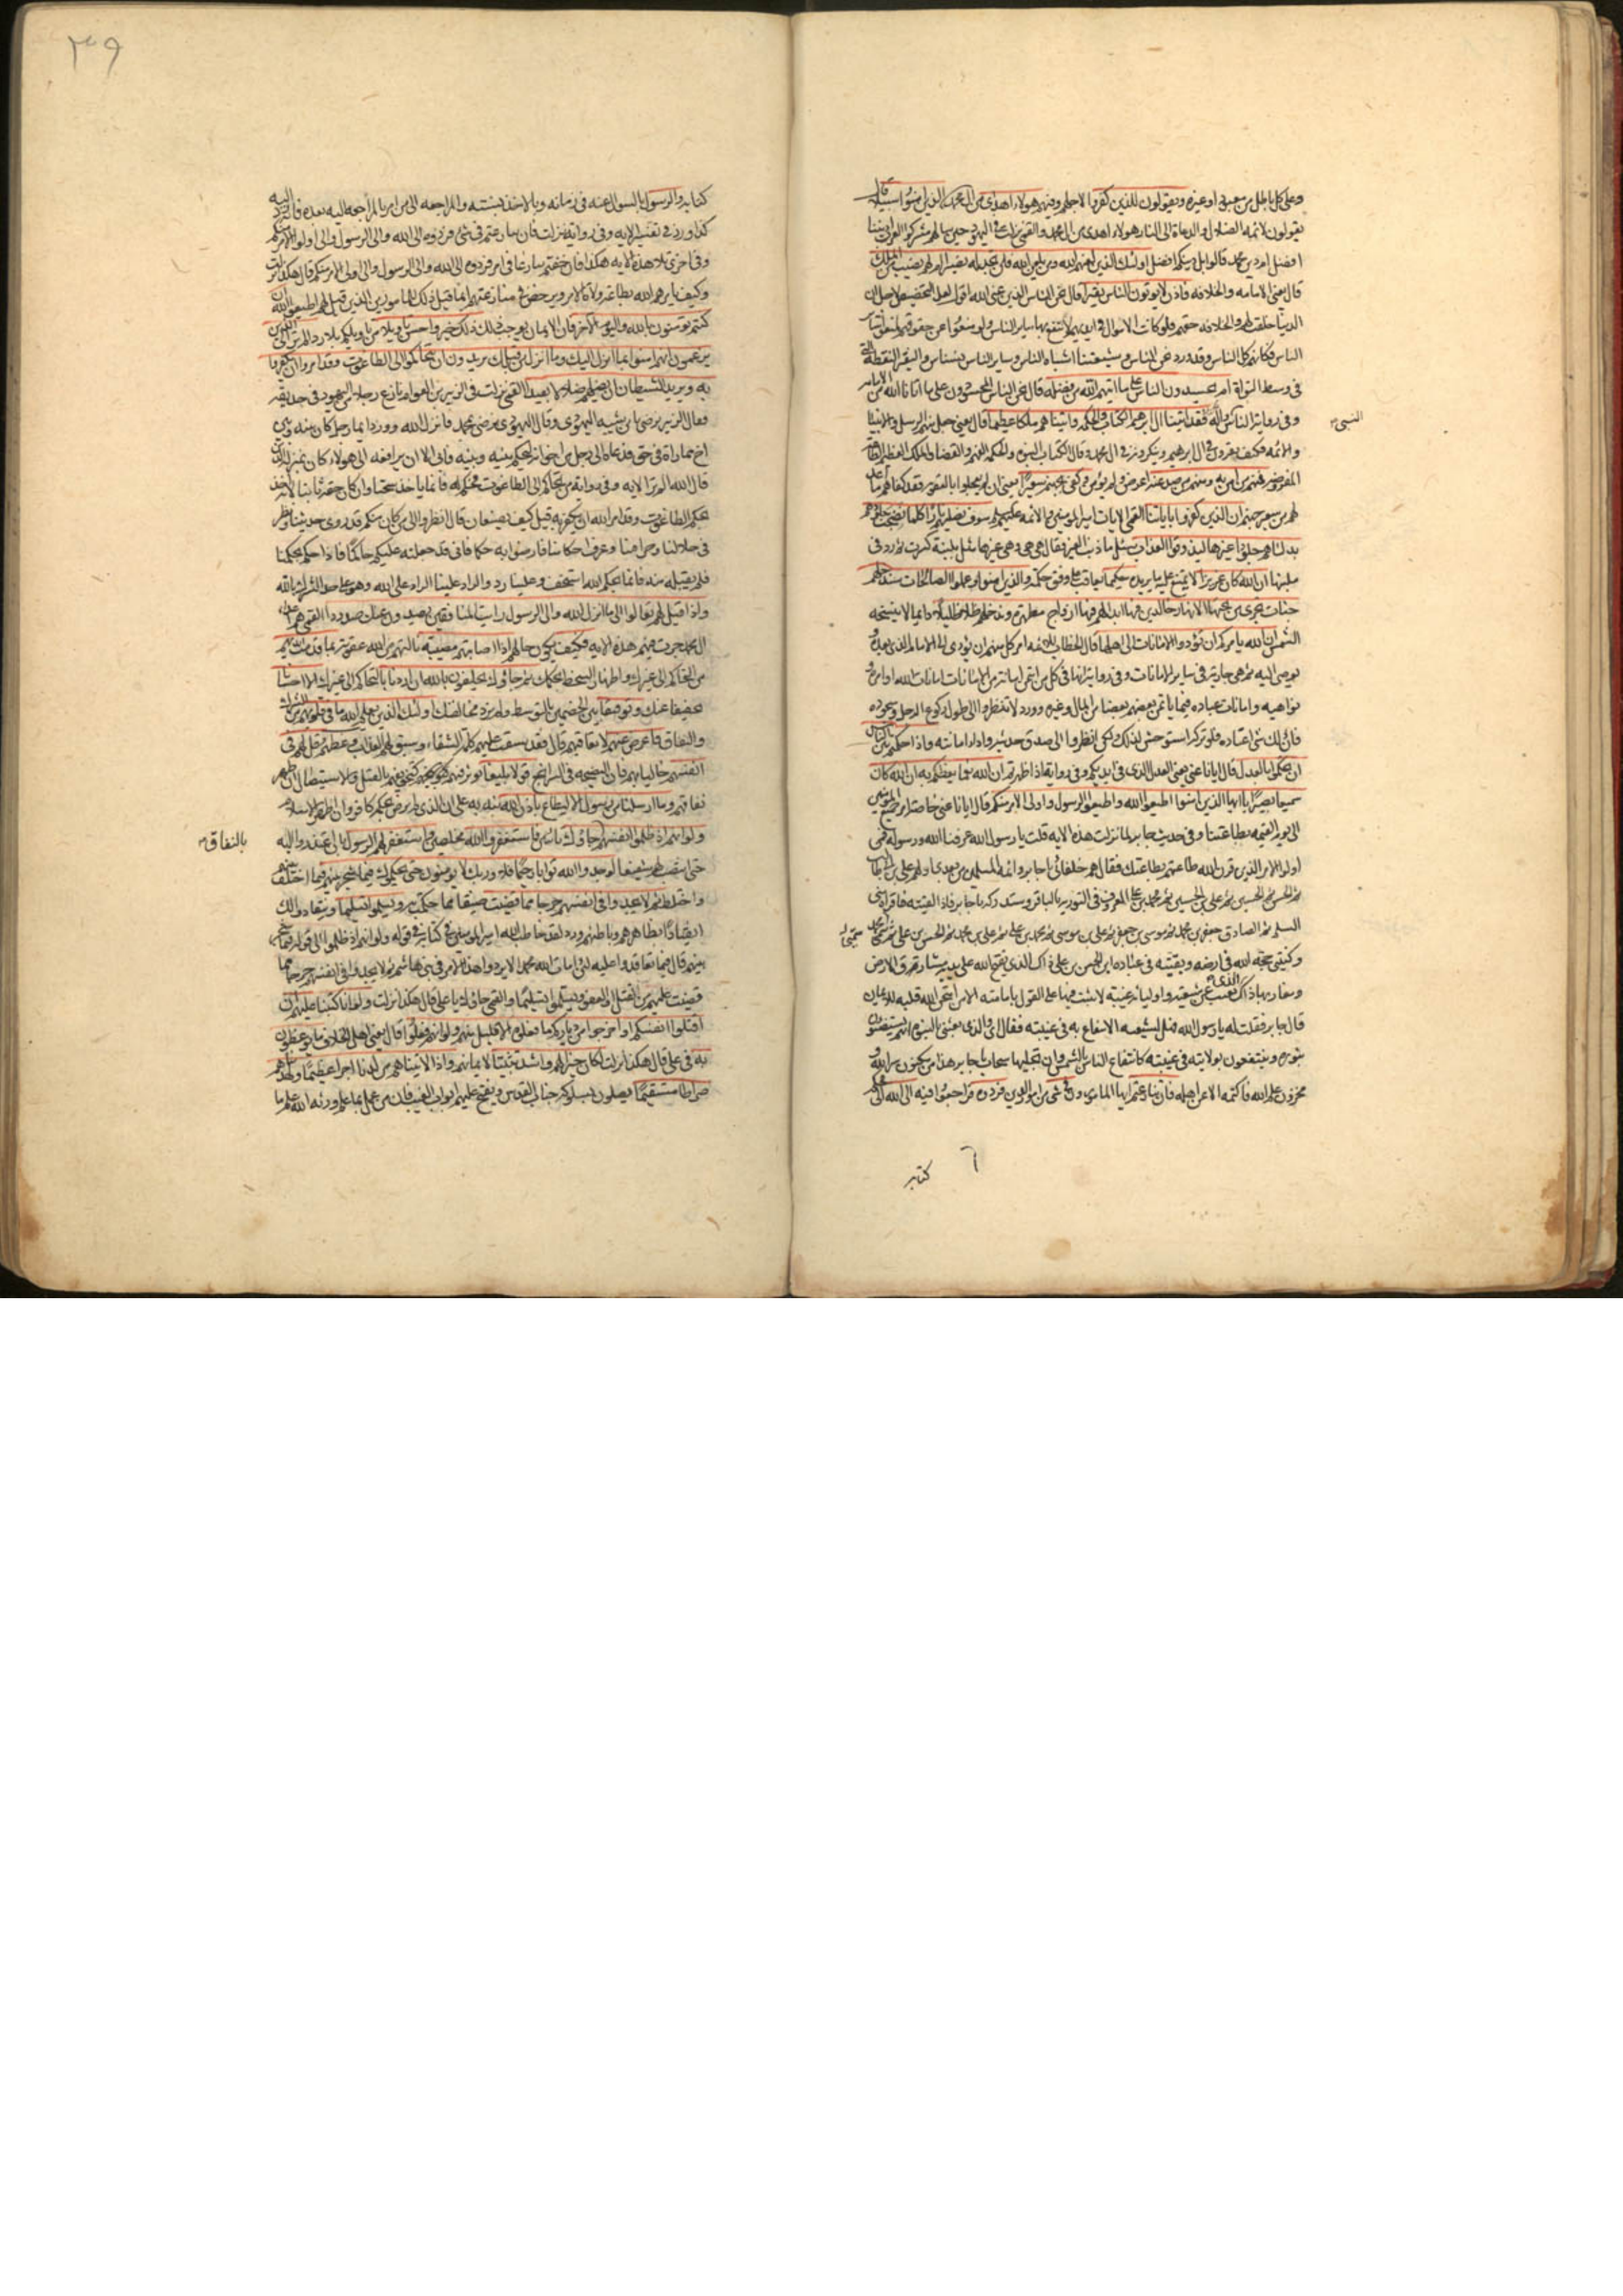 وعلى كل باطل من معبود او غيره ويقولون للذين كفروا لاجلهم وفيهم هولاء اهدى من الذين امنوا سبيلا قال
يقولون لائمه الضلال والدعاة الى النار هولاء اهدى من ال محمد والقمي نزلت في اليهود حين سالهم مشركوا العرب اديننا
افضل ام دين محمد قالوا بل دينكم افضل اولئك الذين لعنهم الله ومن يلعن الله فلن تجد له نصيرا ام لهم نصيب من الملك
قال يعني الامامه والخلافه فاذن لا يوتون الناس نقيرا قال نحن الناس الذين عنى الله اقول لعل التخصيص لاجل ان
الدنيا خلقت لهم والخلافه حقهم فلو كانت الاموال في ايديهم لانتفع بها ساير الناس ولو منعوا عن حقوقهم لمنع
الناس فكانهم كل الناس وقد ورد نحن الناس وشيعتنا اشباه الناس وساير الناس نسناس والنقير النقطة التي
في وسط النواة ام يحسدون الناس على ما اتيهم الله من فضله قال نحن الناس المحسودون على ما اتانا الله من الامامه
وفي رواية الناس النبي واله فقد اتينا ال ابرهيم الكتاب والحكمه واتيناهم ملكا عظيما قال يعني جعل منهم الرسل والانبيا
والائمه فكيف يقرون في ال ابرهيم وينكرونه في ال محمد وقال الكتاب النبوه والحكمه الفهم والقضا والملك العظيم الطاعه
المفروضه فمنهم من امن به ومنهم من صد عنه اعرض ولم يؤمن وكفى بجهنم سعيرا يعني ان لم يعجلوا بالعقوبه فقد كفاهم ما اعد
لهم من سعير جهنم ان الذين كفروا باياتنا القمي الايات امير المومنين والائمه عليهم سوف نصليهم نارا كلما نضجت جلودهم
بدلناهم جلودا غيرها ليذوقوا العذاب سئل ما ذنب الغير فقال هي هي وهي غيرها مثل بلبنة كسرت ثم رد في
ملبنها ان الله كان عزيزا لا يمتنع عليه ما يريده حكيما يعاقب على وفق حكمته والذين امنوا وعملوا الصالحات سندخلهم
جنات تجري من تحتها الانهار خالدين فيها ابدا لهم فيها ازواج مطهرة وندخلهم ظلا ظليلا دايما لا ينسخه
الشمس ان الله يامركم ان تؤدوا الامانات الى اهلها قال الخطاب للائمه امر كل منهم ان يؤدي الى الامام الذي بعده و
يوصى اليه ثم هي جارية في ساير الامانات وفي رواية انها في كل من ائتمن امانة من الامانات امانات الله اوامره و
نواهيه وامانات عباده فيما ياتمن بعضهم بعضا من المال وغيره وورد لا تنظروا الى طول ركوع الرجل وسجوده
فان ذلك شي اعتاده فلو تركه استوحش لذلك ولكن انظروا الى صدق حديثه واداء امانته واذا حكمتم بين الناس
ان تحكموا بالعدل قال ايانا عنى يعني العدل الذي في ايديكم وفي رواية اذا ظهرتم ان الله نعما يعظكم به ان الله كان
سميعا بصيرا يا ايها الذين امنوا اطيعوا الله واطيعوا الرسول واولى الامر منكم قال ايانا عنى خاصة امر جميع المومنين
الى يوم القيمه بطاعتنا وفي حديث جابر لما نزلت هذه الايه قلت يا رسول الله عرفنا الله ورسوله فمن
اولوا الامر الذين قرن الله طاعتهم بطاعتك فقال هم خلفائي يا جابر وائمه المسلمين من بعدي اولهم علي بن ابيطالب
ثم الحسن ثم الحسين ثم علي بن الحسين ثم محمد بن علي المعروف في التورية بالباقر وستدركه يا جابر فاذا لقيته فاقراه مني
السلم ثم الصادق جعفر بن محمد ثم موسى بن جعفر ثم علي بن موسى ثم محمد بن علي ثم علي بن محمد ثم الحسن بن علي ثم سمي محمد
وكنيتي حجه الله في ارضه وبقيته في عباده ابن الحسن بن علي ذاك الذي يفتح الله على يديه مشارق الارض
ومغاربها ذاك الذي يغيب عن شيعته واوليائه غيبة لا يثبت فيها على القول بامامته الا من امتحن الله قلبه للايمان
قال جابر فقلت له يا رسول الله فهل لشيعه الانتفاع به في غيبته فقال اي والذي بعثني بالنبوه انهم يستضيئون
بنوره وينتفعون بولايته في غيبته كانتفاع الناس بالشمس وان تجللها سحاب يا جابر هذا من مكنون سر الله و
مخزون علم الله فاكتمه الا عن اهله فان تنازعتم ايها المامورون في شي من امور الدين فردوه فراجعوا فيه الى الله الى محكم
النبي
سميي
كتابه
كتابه والرسول بالسوال عنه في زمانه وبالاخذ بسنته والمراجعه الى من امر بالمراجعه اليه بعده فانه رد اليه
كذا ورد في تفسير الايه وفي رواية نزلت فان تنازعتم في شي فردوه الى الله والى الرسول والى اولى الامر منكم
وفي اخرى تلا هذه الايه هكذا فان خفتم تنازعا في امر فردوه الى الله والى الرسول والى اولى الامر منكم قال هكذا نزلت
وكيف يامرهم الله بطاعة ولاة الامر ويرخص في منازعتهم انما قيل ذلك للمامورين الذين قيل لهم اطيعوا الله ان
كنتم تومنون بالله واليوم الاخر فان الايمان يوجب ذلك ذلك خير واحسن تاويلا من تاويلكم بلا رد الم تر الى الذين
يزعمون انهم امنوا بما انزل اليك وما انزل من قبلك يريدون ان يتحاكموا الى الطاغوت وقد امروا ان يكفروا
به ويريد الشيطان ان يضلهم ضلالا بعيدا القمي نزلت في الزبير بن العوام نازع رجلا من اليهود في حديقه
فقال الزبير ترضى بابن شيبه اليهودي وقال اليهودي ترضى بمحمد فانزل الله وورد ايما رجل كان بينه وبين
اخ مماراة في حق فدعاه الى رجل من اخوانه ليحكم بينه وبينه فابى الا ان يرافعه الى هولاء كان بمنزلة الذين
قال الله الم تر الايه وفي رواية من تحاكم الى الطاغوت فحكم له فانما ياخذ سحتا وان كان حقه ثابتا لانه اخذ
بحكم الطاغوت وقد امر الله ان يكفر به قيل كيف يصنعان قال انظروا الى من كان منكم قد روى حديثنا ونظر
في حلالنا وحرامنا وعرف احكامنا فارضوا به حكما فاني قد جعلته عليكم حاكما فاذا حكم بحكمنا
فلم يقبله منه فانما بحكم الله استخف وعلينا رد والراد علينا الراد على الله وهو على حد الشرك بالله
واذا قيل لهم تعالوا الى ما انزل الله والى الرسول رايت المنافقين يصدون عنك صدودا القمي هم اعداء
ال محمد جرت فيهم هذه الايه فكيف يكون حالهم اذا اصابتهم مصيبة نالتهم من الله عقوبة بما قدمت ايديهم
من التحاكم الى غيرك واظهار السخط لحكمك ثم جاؤك يحلفون بالله ان اردنا بالتحاكم الى غيرك الا احسانا
تخفيفا عنك وتوفيقا بين الخصمين بالتوسط ولم نرد مخالفتك اولئك الذين يعلم الله ما في قلوبهم من الشرك
والنفاق فاعرض عنهم لا تعاقبهم قال فقد سبقت عليهم كلمة الشقاء وسبق لهم العذاب وعظهم وقل لهم في
انفسهم خاليا بهم فان النصيحه في السر انجع قولا بليغا يوثر فيهم كتخويفهم بالقتل والاستيصال ان ظهر
نفاقهم وما ارسلنا من رسول الا ليطاع باذن الله نبه به على ان الذي لم يرض بحكمه كافر وان اظهر الاسلام
ولو انهم اذ ظلموا انفسهم جاؤك تائبين فاستغفروا الله مخلصين واستغفر لهم الرسول بان اعتذروا اليه
حتى انتصب لهم شفيعا لوجدوا الله توابا رحيما فلا وربك لا يومنون حتى يحكموك فيما شجر بينهم فيما اختلف بينهم
واختلط ثم لا يجدوا في انفسهم حرجا مما قضيت ضيقا مما حكمت به ويسلموا تسليما وينقادوا لك
انقيادا بظاهرهم وباطنهم ورد لقد خاطب الله امير المومنين في كتابه في قوله ولو انهم اذ ظلموا الى قوله فيما شجر
بينهم قال فيما تعاقدوا عليه لئن امات الله محمدا لا يردوا هذا الامر في بني هاشم ثم لا يجدوا في انفسهم حرجا مما
قضيت عليهم من القتل او العفو ويسلموا تسليما والقمي جاؤك يا علي قال هكذا نزلت ولو انا كتبنا عليهم ان
اقتلوا انفسكم او اخرجوا من دياركم ما فعلوه الا قليل منهم ولو انهم فعلوا قال يعني اهل الخلاف ما يوعظون
به في علي قال هكذا نزلت لكان خيرا لهم واشد تثبيتا لايمانهم واذا لاتيناهم من لدنا اجرا عظيما ولهديناهم
صراطا مستقيما يصلون بسلوكه جناب القدس ويفتح عليهم ابواب الغيب فان من عمل بما علم ورثه الله علم ما
بالنفاق
٣٩